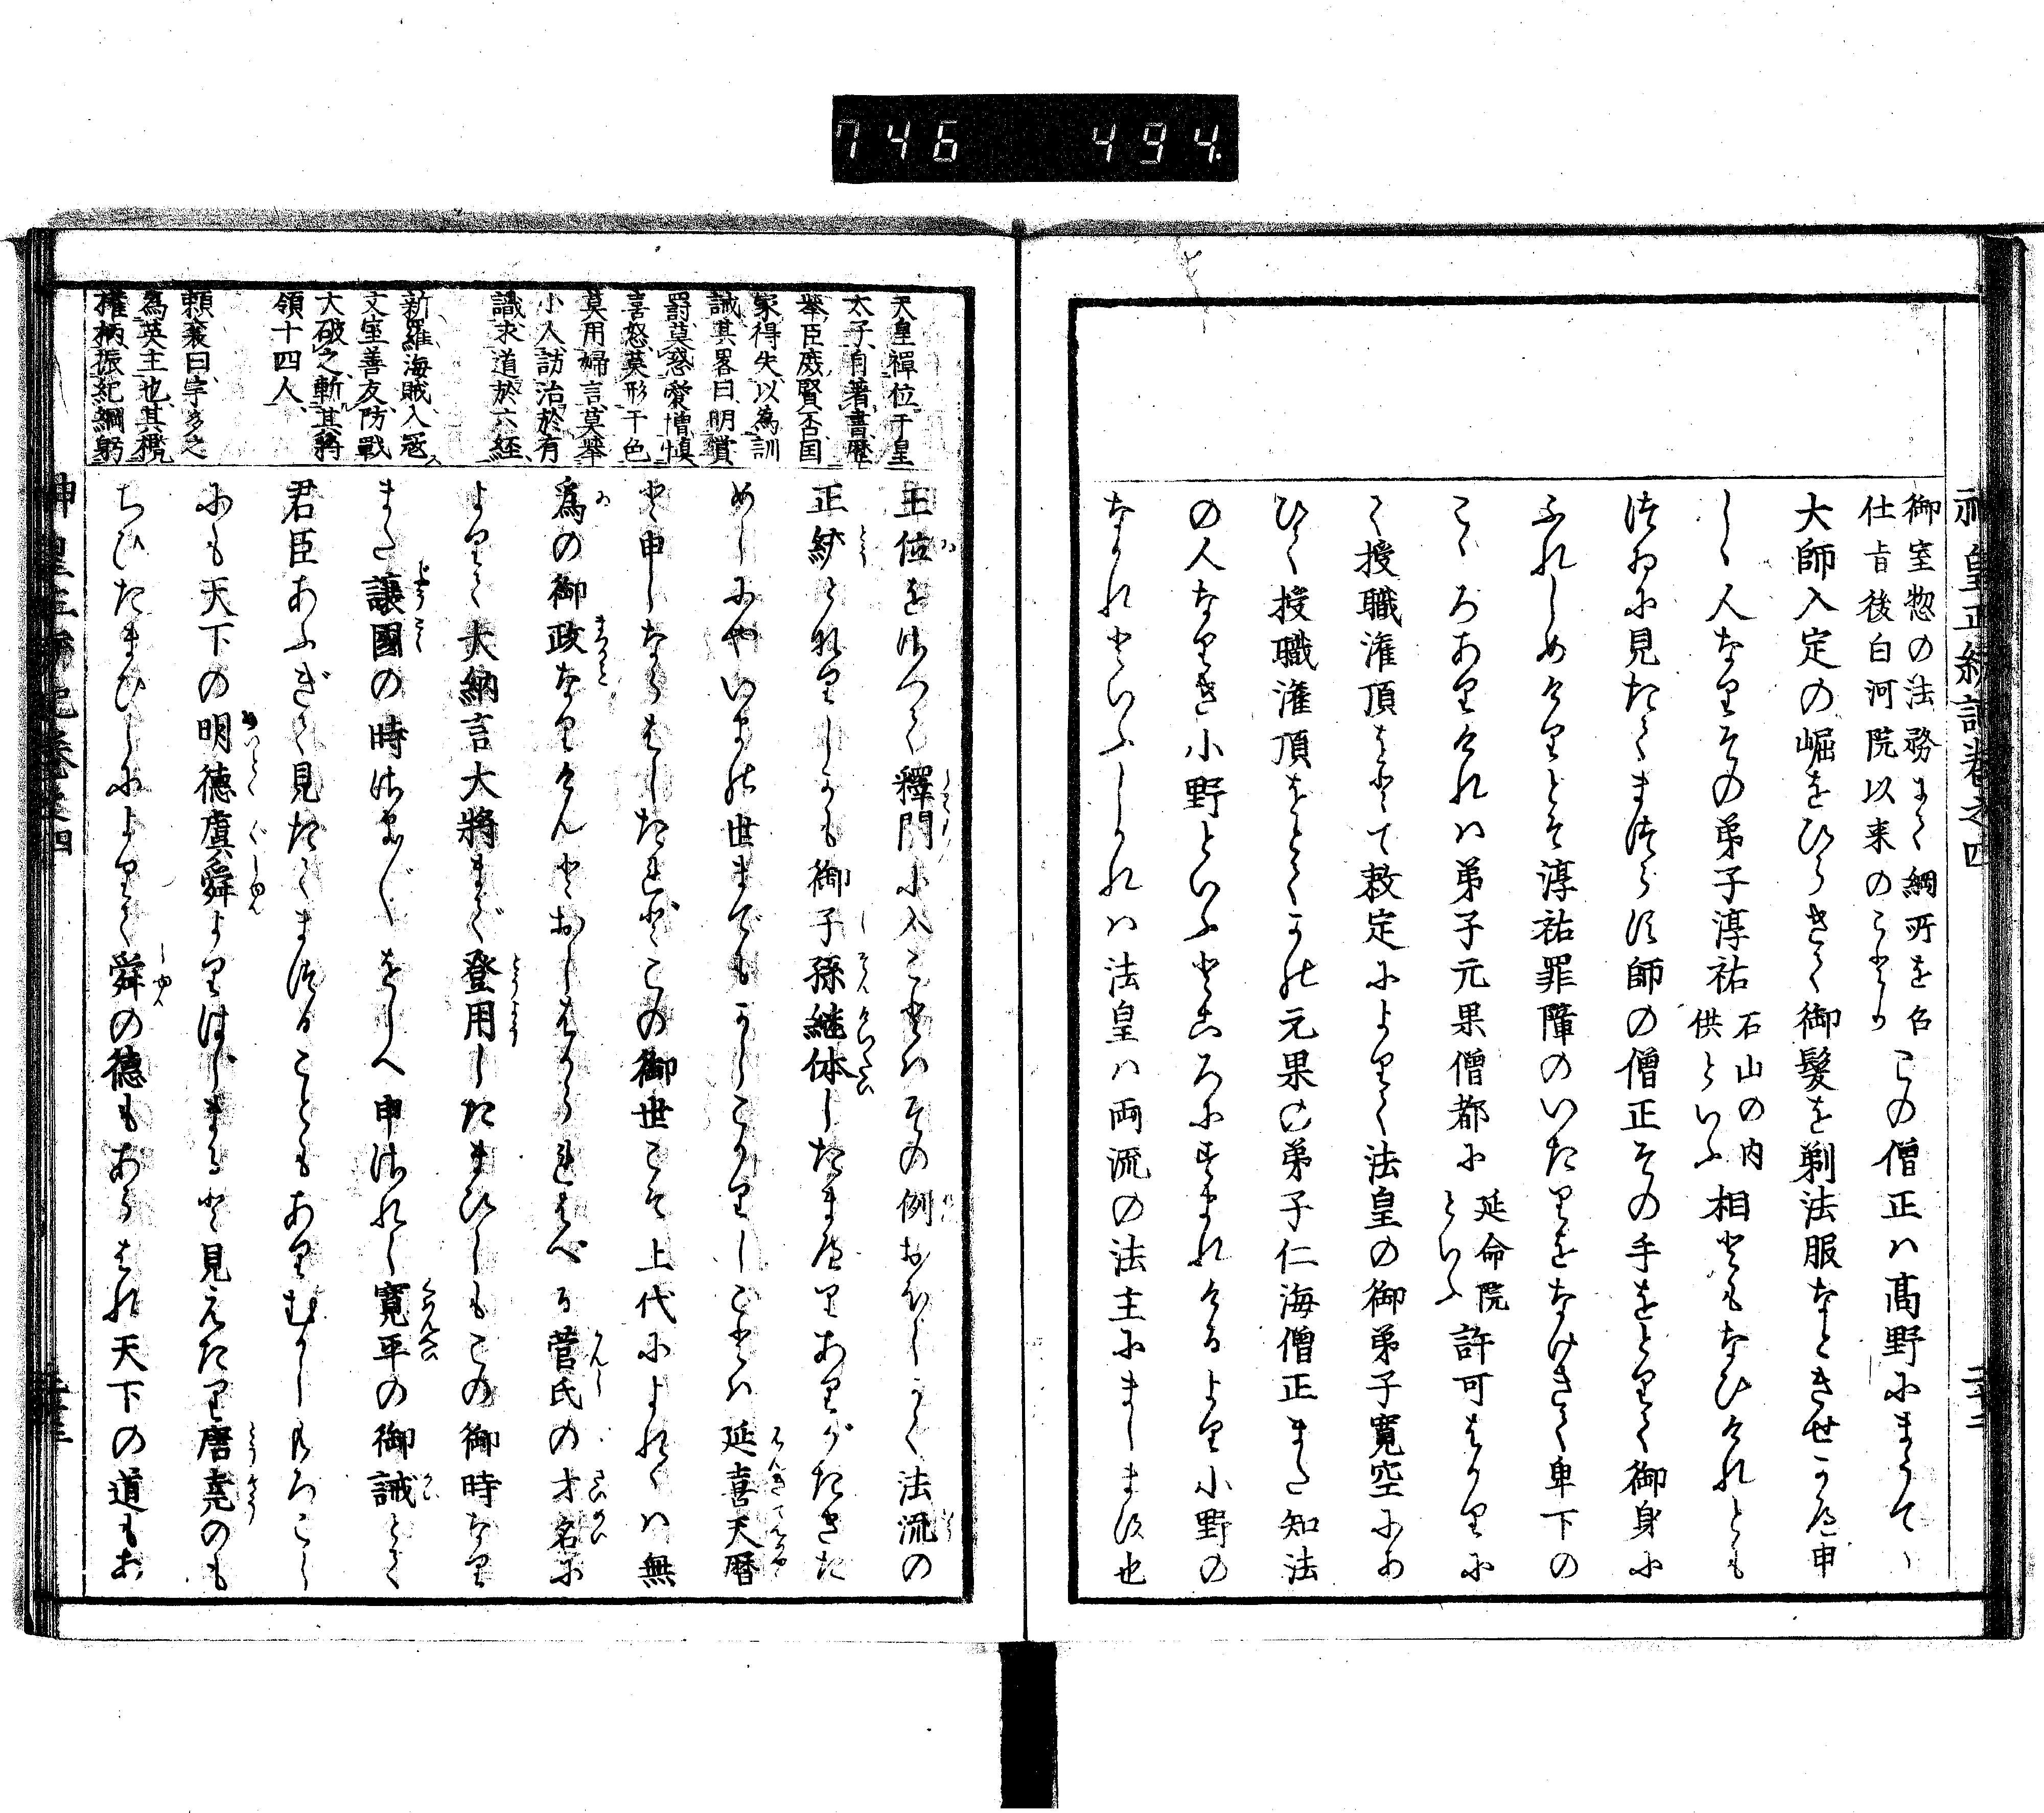 746 494.
神皇正統記卷之四
御室惣の法務まて綱所を召
仕㫖後白河院以来のことか
この僧正ハ髙野にまうてヽ
大師入定の崛をひらきて御髪を剃法服なときせかへ申
しヽ人なりその弟子淳祐
石山の内
供といふ
相ともなひけれとも
つゐに見たてまつらす師の僧正その手をとりて御身に
ふれしめけりとそ淳祐罪障のいたりをなけきて卑下の
こヽろありけれハ弟子元果僧都に
延命院
といふ
許可はかりに
て授職潅頂をとけて敕定によりて法皇の御弟子寛空にあ
ひて授職潅頂をとくかの元果の弟子仁海僧正また知法
の人なりき小野といふところにすまれけるより小野の
なかれといふしかれハ法皇ハ両流の法主にまします也
天皇禪位于皇
太子自著書歴
舉臣庶賢否国
家得失以為訓
誡其畧曰明賞
罰莫惑愛憎慎
喜怒莫形于色
莫用婦言莫舉
小人訪治於有
識求道於六経
新羅海賊入冦
文室善友防戦
大破之斬其將
領十四人
頼襄曰宇多之
為英主也其攬
權柄振紀綱躬
王位をさつて釋門に入ことハその例おほしかく法流の
正統となりしかも御子孫継体したまへりありがたきた
めしにやいまの世までもかしこかりしことハ延喜天暦
と申しならはしたれどこの御世こそ上代によれハ無
爲の御政なりけんとおしはかられはべる菅氏の才名に
よりて大納言大將まで登用したまひしもこの御時なり
また譲國の時さま〴〵をしへ申されし寛平の御誡とて
君臣あふぎて見たてまつることもありむかしもろこし
にも天下の明德虞舜よりはじまると見えたり唐堯のも
ちひたまひしによりて舜の德もあらはれ天下の道もあ
神皇正統記卷之四